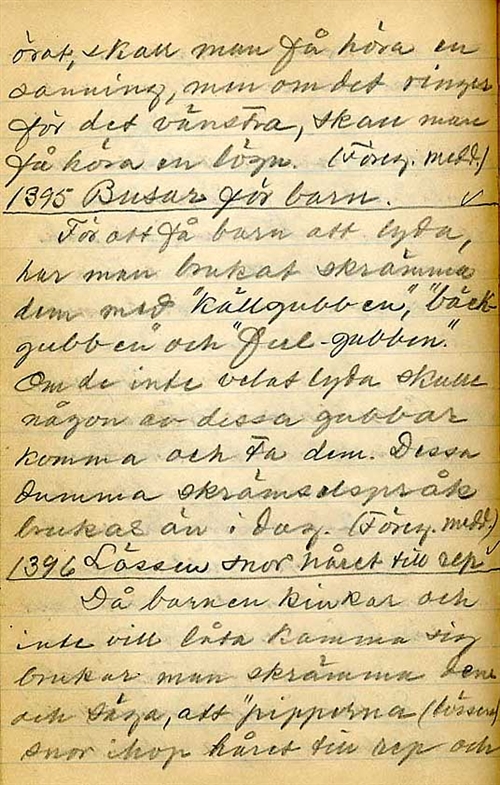 örat, skall man få höra en
sanning, men om det ringer
för det vänstra, skall man
få höra en lögn. (Föreg. medd.)
1395 Busar för barn. ✓
För att få barn att lyda,
har man brukat skrämma
dem med "källgubben", "bäck-
gubben" och "Ful-gubben."
Om de inte velat lyda skulle
någon av dessa gubbar
komma och ta dem. Dessa
dumma skrämselspråk
brukas än i dag. (Föreg. medd.)
1396 Lössen snor håret till rep
Då barnen kinkar och
inte vill låta kamma sig
brukar man skrämma dem
och säga, att "pipporna (lössen)
snor ihop håret till rep och